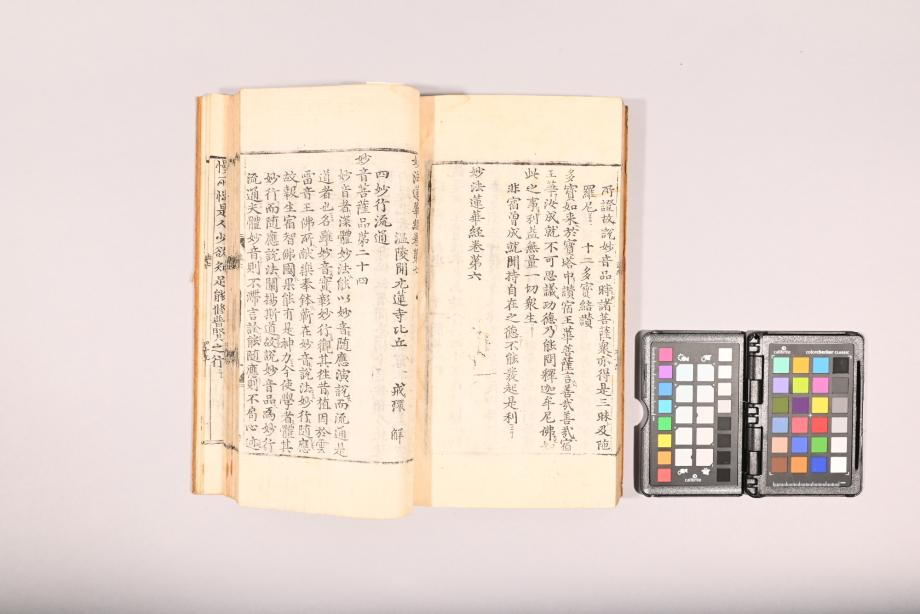 所證故說妙音品時諸菩薩衆亦得是三昧及陁
羅尼 十二多寶結讚
多寶如來於寶塔中讚宿王華菩薩言善哉善哉宿
王華汝成就不可思議功德乃能問釋迦牟尼佛如
此之事利益無量一切衆生
非宿曾成就聞持自在之德不能發起是利
妙法蓮華經卷第六
妙法蓮華經卷第七
溫陵開元蓮寺比丘 戒環 解
四妙行流通
妙音菩薩品第二十四
妙音者深體妙法能以妙音隨應演說而流通是
道者也名雖妙音實彰妙行觀其往昔植因於雲
雷音王佛所獻樂奉鉢蘄在妙音說法妙行隨應
故報生宿智佛國果能有是神力今使學者體其
妙行而隨應說法闡揚斯道故說妙音品爲妙行
流通夫體妙音則不滯言詮能隨應則不局心迹
是人少欲知足能修普賢之行
calibrite
colorchecker CLASSIC
calibrite